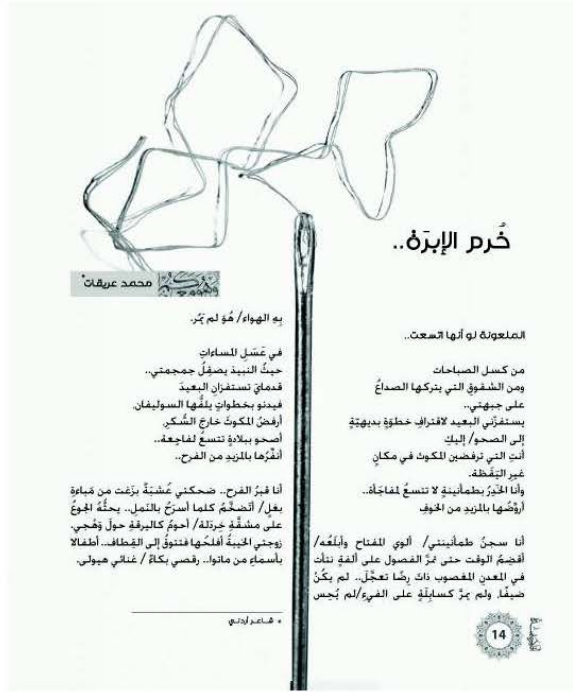 خُرم الإبرَة..
محمد عريقات*
الملعونة لو أنها اتسعت..
من كسل الصباحات
ومن الشقوق التي يتركها الصداعُ
على جبهتي..
يستفزّني البعيد لاقترافِ خطوَةٍ بديهيّةٍ
إلى الصحو/ إليكِ
أنتِ التي ترفضين المكوث في مكانٍ
غيرِ اليَقَظة.
وأنا الخَدِرُ بطمأنينةٍ لا تتسعُ لمفاجَأة..
أروّضُها بالمزيدِ من الخوفِ
أنا سجنُ طمأنينتي/ ألوي المفتاح وأبلَعُه/
أقضِمُ الوقت حتى تمرَّ الفصول على ألفةٍ نتأت
في المعدنِ المغصوب ذاتَ رِضًا تعجَّلَ.. لم يكُنْ
ضيفًا، ولم يمرَّ كسابِلَةٍ على الفيء/لم يُحِس
بِهِ الهواء/ هُوَ لم يمُر.
في عَسَلِ المساءاتِ
حيثُ النبيذ يصقِلُ جمجمتي..
قدمايَ تستفزانِ البعيدَ
فيدنو بخطواتٍ يلفُّها السوليفان.
أرفضُ المكوثَ خارجَ السُّكرِ.
أصحو ببلادةٍ تتسعُ لفاجِعة..
أنفِّرُها بالمزيدِ من الفرح..
أنا قبرُ الفرح.. ضحكتي عُشبَةٌ بزَغت من مَباءةِ
بغلٍ/ أتضخَّمُ كلما أسرَجُ بالنملِ.. يحثُّهُ الجوعُ
على مشقَّةِ خردَلة/ أحومُ كاليرقةِ حولَ وَهْجي.
زوجتي الخيبةُ أفلحُها فتتوقُ إلى القِطاف.. أطفالا
بأسماءِ من ماتوا.. رقصي بكاءٌ / غنائي هيولى.
* شاعر أردني
14